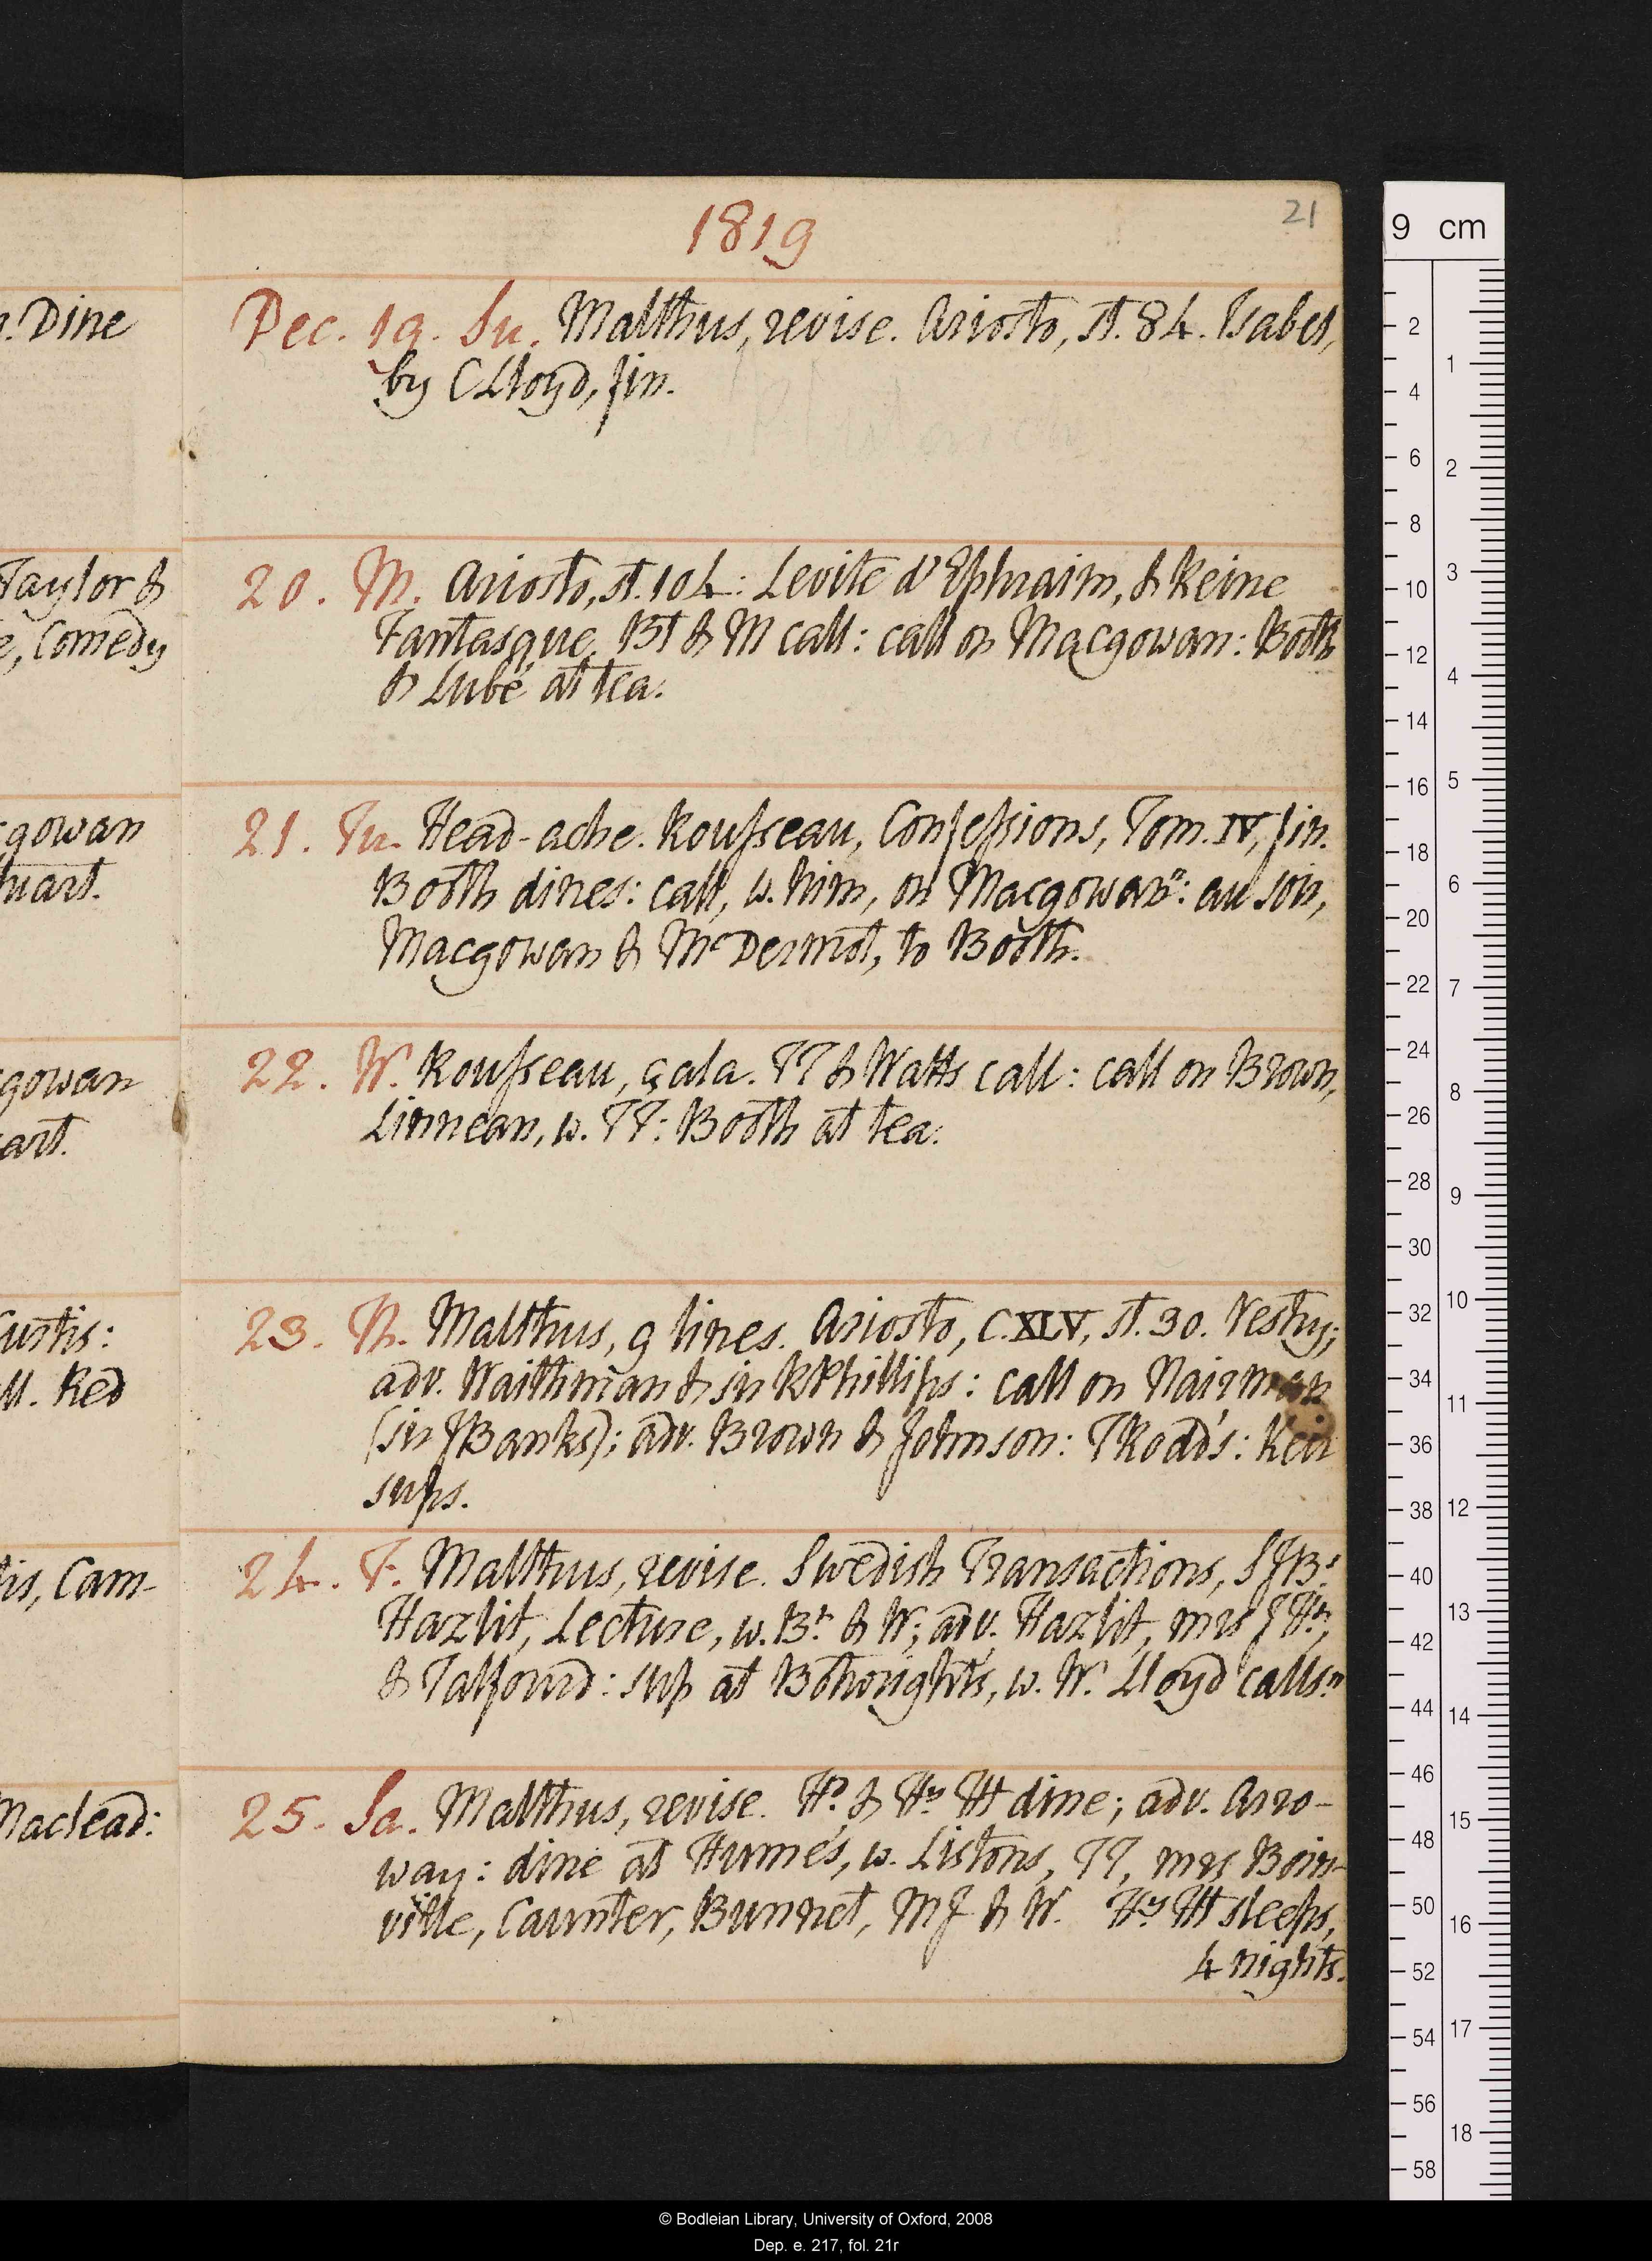 1819
21
Dec. 19. Su. Malthus, revise. Ariosto, st. 84. Isabel,
by CLloyd, fin.
20. M. Ariosto, st. 104: Levite d'Ephraim, & Reine
Fantasque. Bt & M call: call on Macgowan: Booth
& Lubé at tea.
21. Tu. Head-ache. Rousseau, Confessions, Tom. IV, fin.
Booth dines: call, w. him, on Macgowan n: au soir,
Macgowan & McDermot, to Booth.
22. W. Rousseau, çala. TT & Watts call: call on Brown,
Linnean, w. TT: Booth at tea.
23. Th. Malthus, 9 lines. Ariosto, C. XLV, st. 30. Vestry;
adv. Waithman & sir RPhillips: call on Nairman
(sir JBanks); adv. Brown & Johnson: TRoad's: Keir
sups.
24. F. Malthus, revise. Swedish Transactions, SJBs
Hazlit, Lecture, w. Bt & W; adv. Hazlit, mrs JHn,
& Talfourd: sup at Bthwrights, w. W. Lloyd calls n
25. Sa. Malthus, revise. Hd & Hy Ht dine; adv. Arro-
way: dine at Hume's, w. Listons, TT, mrs Boin-
ville, Caunter, Bunnet, MJ & W. Hy Ht sleeps,
4 nights.
. Dine
Taylor &
e, Comedy
gowan
art.
gowan
art.
Curtis:
ll. Red
tis, Cam-
Maclead:
9 cm
2
4
6
8
10
12
14
16
18
20
22
24
26
28
30
32
34
36
38
40
42
44
46
48
50
52
54
56
58
1
2
3
4
5
6
7
8
9
10
11
12
13
14
15
16
17
18
© Bodleian Library, University of Oxford, 2008
Dep. e. 217, fol. 21r